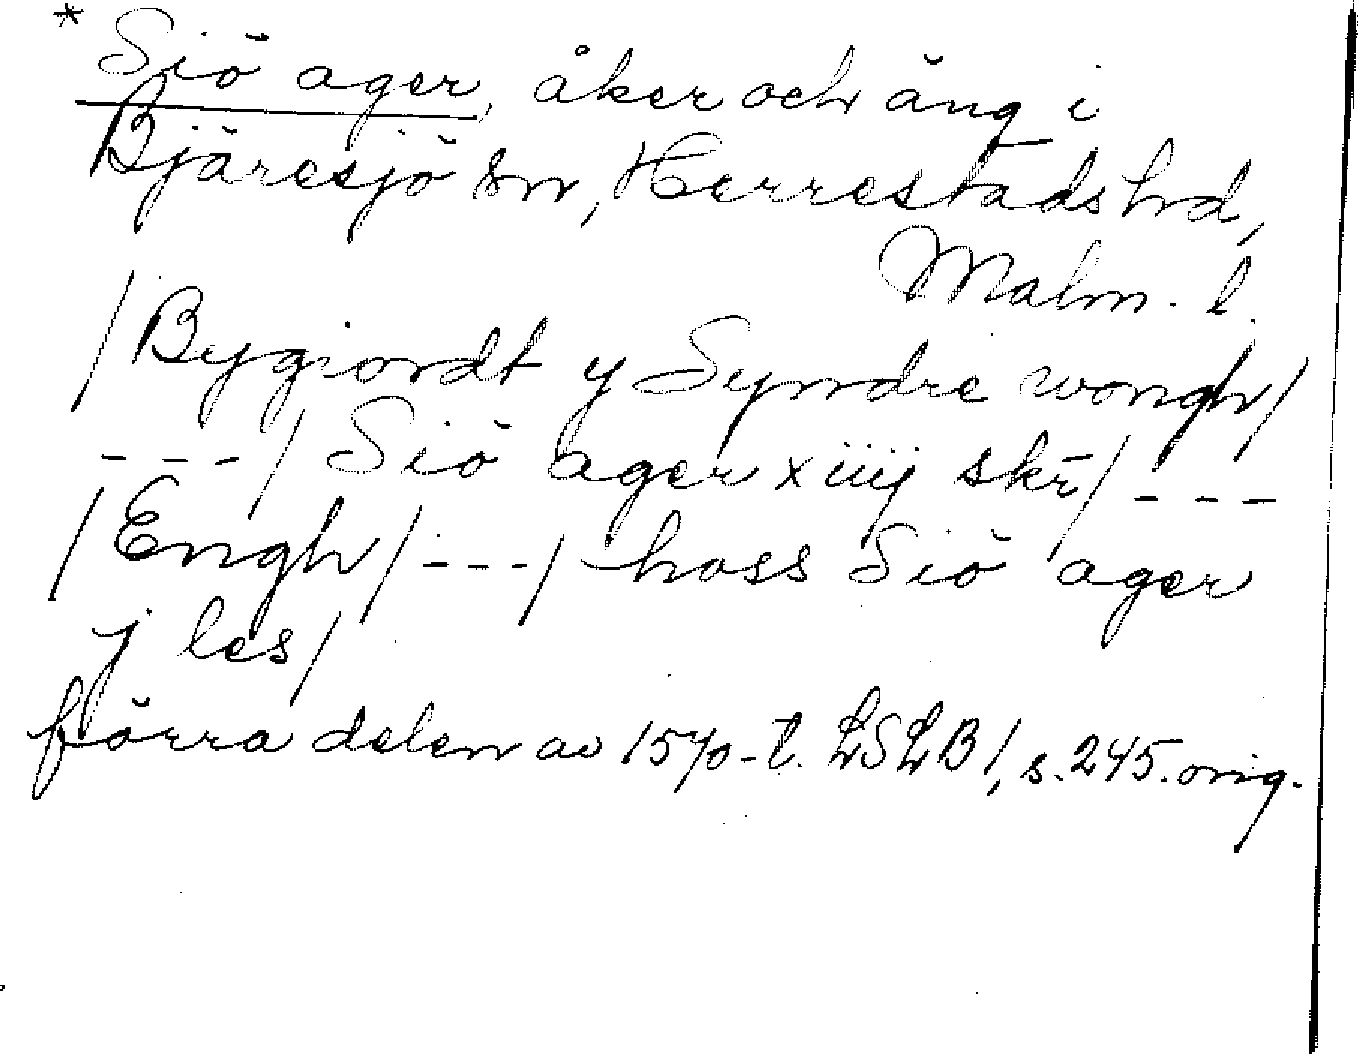 * Siö ager, åker och äng i
Bjäresjö sn, Herrestads hd,
Malm. l.
/Bygiordt y Syndre wongh/
---/ Siö ager x iiij skr̄/ ---
/Engh/---/ hoss Siö ager
j les/
förra delen av 1570-t. LSLB 1, s. 245. orig.